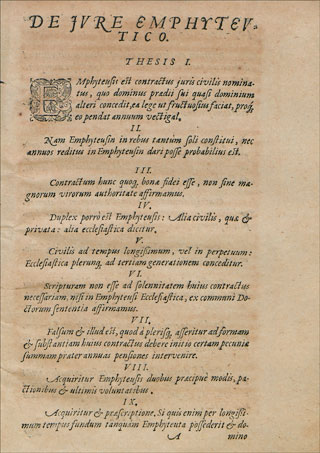 DE JVRE EMPHYTEV-
TICO.
THESIS I.
EMphyteusis est contractus juris civilis nomina-
tus, quo dominus prædii sui quasi dominium
alteri concedit, ea lege ut fructuosius faciat, proq́;
eo pendat annuum vectigal.
II.
Nam Emphyteusin in rebus tantum soli constitui, nec
annuos reditus in Emphyteusin dari posse probabilius est.
III.
Contractum hunc quoq; bonæ fidei esse, non sine ma-
gnorum virorum authoritate affirmamus.
IV.
Duplex porrò est Emphyteusis: Alia civilis, quæ &
privata: alia ecclesiastica dicitur.
V.
Civilis ad tempus longissimum, vel in perpetuum:
Ecclesiastica plerunq; ad tertiam generationem conceditur.
VI.
Scripturam non esse ad solennitatem huius contractus
necessariam, nisi in Emphyteusi Ecclesiastica, ex communi Do-
ctorum sententia affirmamus.
VII.
Falsum & illud est, quod à plerisq; asseritur ad formam
& substantiam huius contractus debere initio certam pecuniæ
summam præter annuas pensiones intervenire.
VIII.
Acquiritur Emphyteusis duobus præcipuè modis, pa-
ctionibus & ultimis voluntatibus.
IX.
Acquiritur & præscriptione. Si quis enim per longissi-
mum tempus fundum tanquam Emphyteuta possederit & do-
A mino